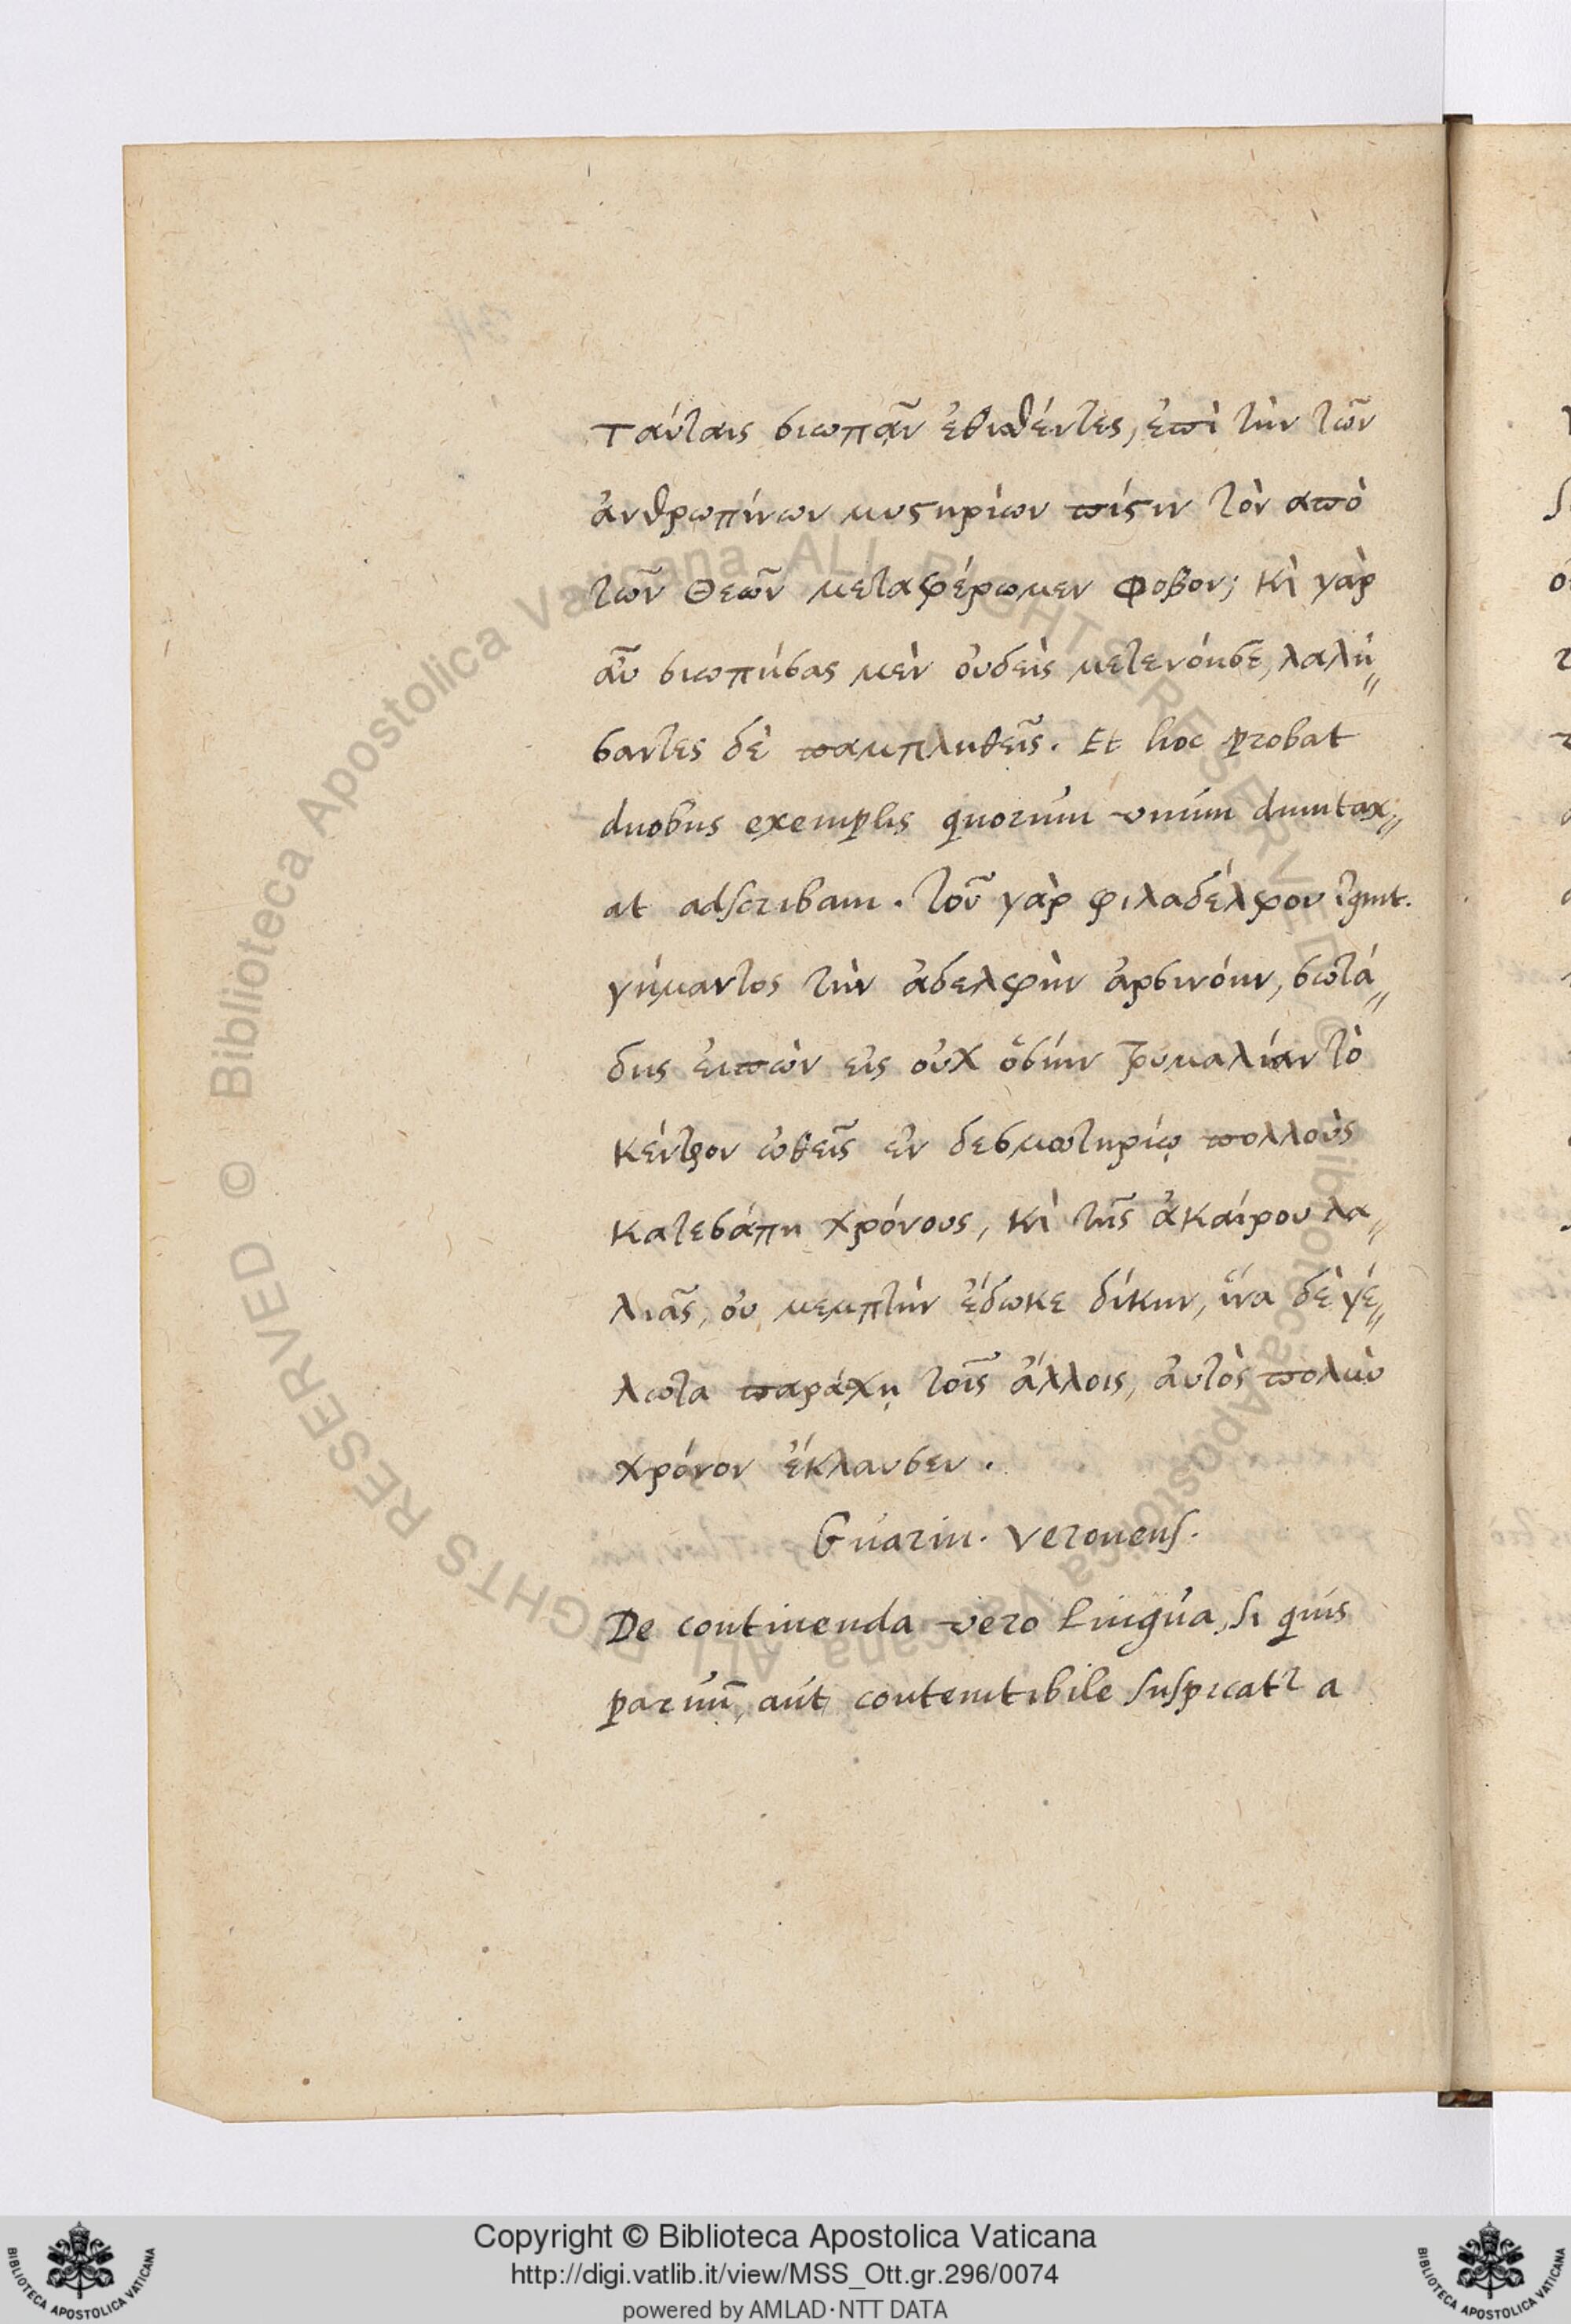 ταύταις σιωπᾶν ἐθισθέντες, ἐπὶ τὴν τῶν
ἀνθρωπίνων μυστηρίων πίστιν τὸν απὸ
τῶν Θεῶν μεταφέρωμεν Φοβον; κὶ γὰρ
αὖ σιωπήσας μὲν οὐδεὶς μετενόησε, λαλή〃
σαντες δὲ παμπληθεῖς. Et hoc probat
duobus exemplis quorum unum dumtax〃
at adscribam. τοῦ γὰρ φιλαδέλφου
γήμαντος τὴν ἀδελφὴν ἀρσινόην, σωτά〃
δης ἐιπὼν εἰς οὐχ ὁσίην τρυμαλίαν τὸ
κέντρον ὠθεῖς ἐν δεσμωτηρίῳ πολλοὺς
κατεσάπη χρόνους, κὶ τῆς ἀκαίρου λα〃
λιᾶς, οὐ μεμπτὴν ἔδωκε δίκην, ἵνα δὲ γέ〃
λωτα παράχῃ τοῖς ἄλλοις, ἀυτὸς πολὺν
χρόνον ἔκλαυσεν.
Guarin. Veronens.
De continenda vero lingua, si quis
paruū, aut contemtibile suspicatr a
Copyright © Biblioteca Apostolica Vaticana
http://digi.vatlib.it/view/MSS_Ott.gr.296/0074
powered by AMLAD·NTT DATA